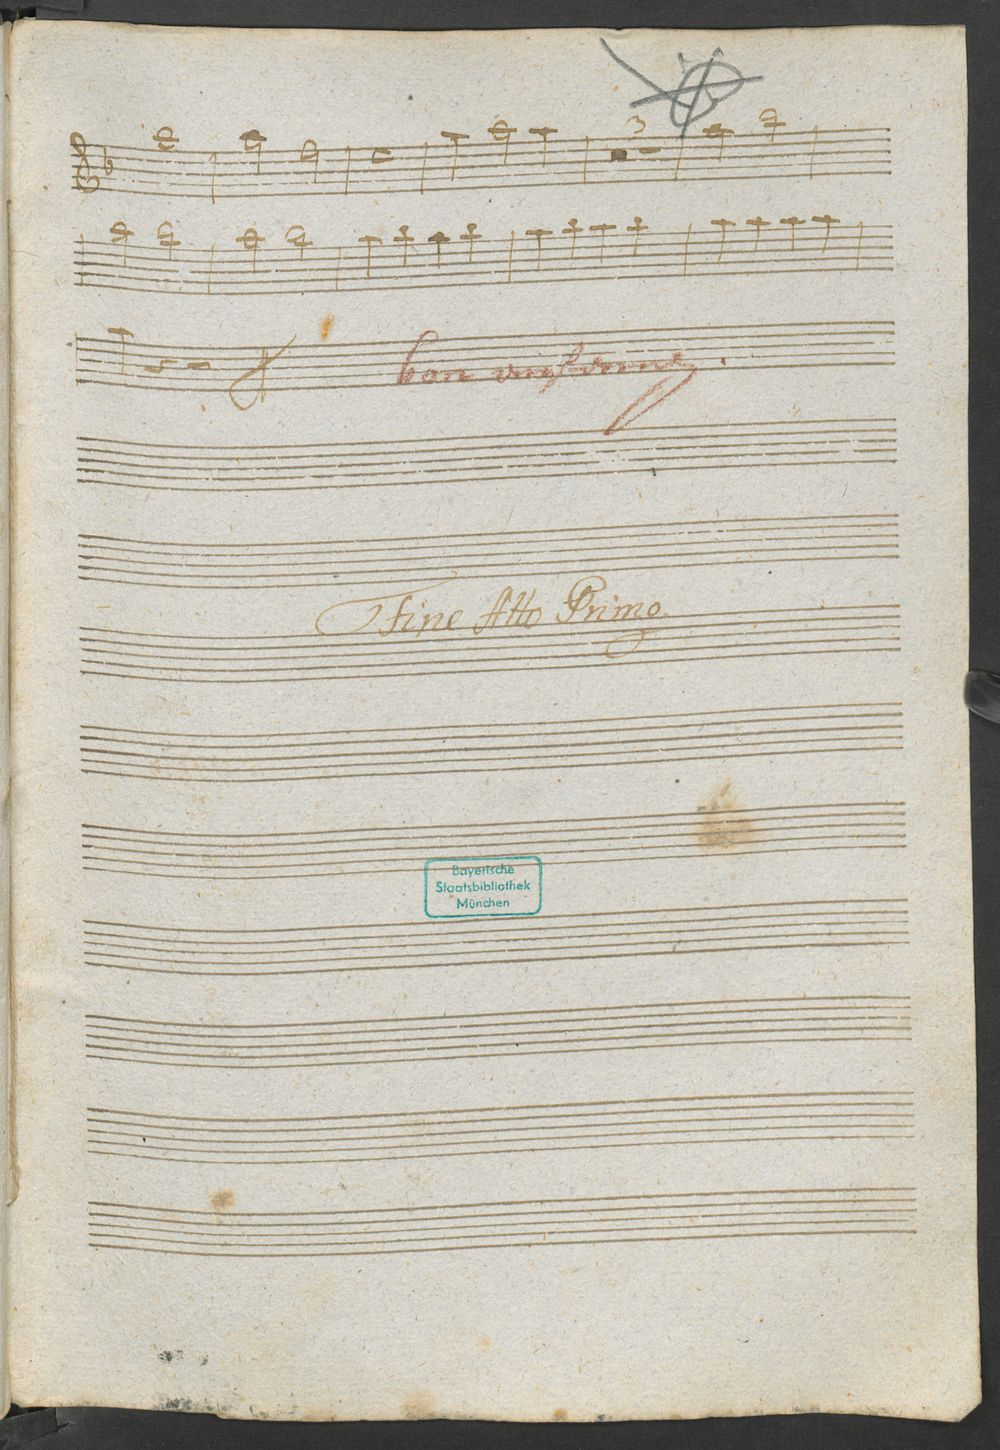 3
bon
Fine Atto Primo
Bayerische
Staatsbibliothek
München